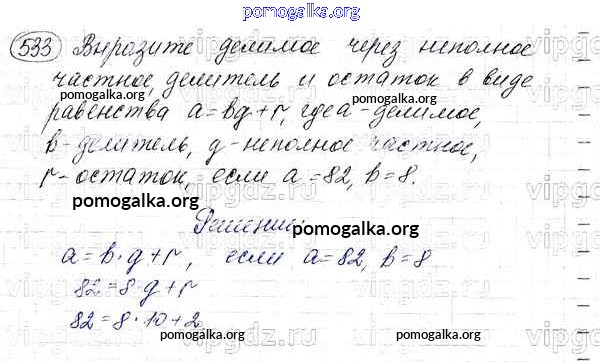 pomogalka.org
533 Выразите делимое через неполное
частное, делитель и остаток в виде
pomogalka.org
равенства a=bq+r, где a-делимое,
b-делитель, q-неполное частное,
r-остаток, если a=82, b=8.
pomogalka.org
Решение
pomogalka.org
a=b·q+r, если a=82, b=8
82=8·q+r
pomogalka.org
82=8·10+2
pomogalka.org